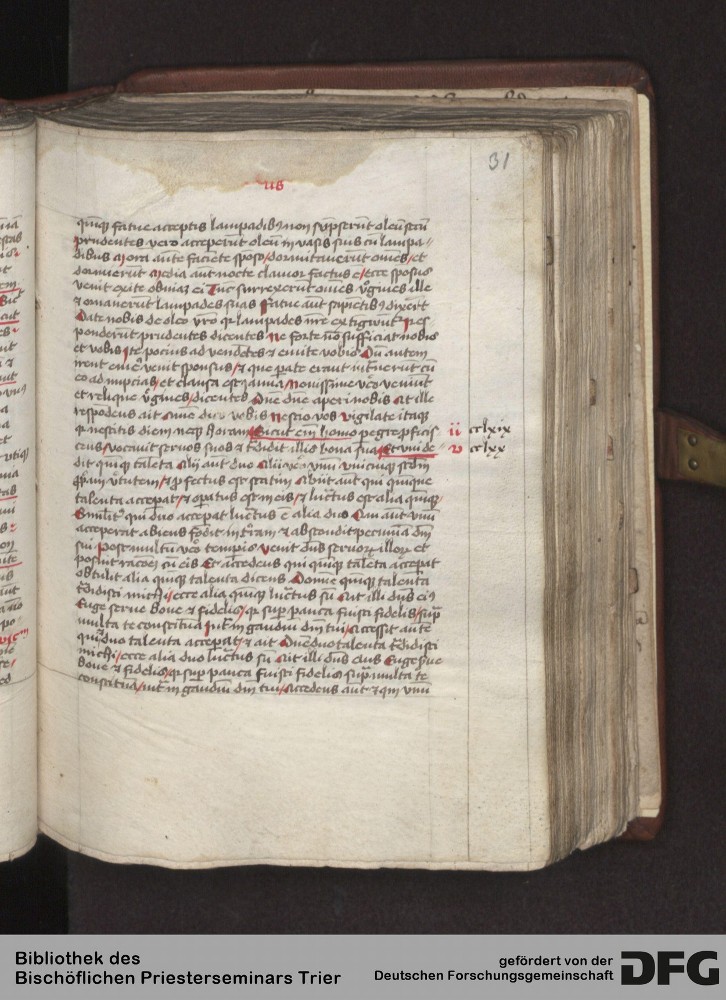 31
us
quinq fatue acceptis lampadib9 non supserut oleu secu
prudentes vero acceperut oleu in vasis suis cu lampa
dibus Mora aute faciete sposo dormitaverut omes et
dormierut Media aut nocte clamor factus e ecce sposus
venit exite obviaz ei Tuc surrexerut omes vgines ille
et ornaverut lampades suas Fatue aut sapietib9 dixert
Date nobis de oleo vro qr lampades nre extigwut Res
ponderut prudentes dicentes Ne forte no sufficiat nobis
et vobis Ite pocius ad vendetes et emite vobis Du autem
irent eme venit sponsus et que pate erant intverut cu
eo ad nupcias et clausa est ianua Novissime vo veniut
et relique vgines dicentes Dne dne aperi nobis At ille
respodens ait Ame dico vobis Nescio vos vigilate itaq
qr nescitis diem neq horam Sicut eni homo pegre pficis
ii cclxix
cens vocavit servos suos et tdidit illis bona sua Et uni de
v cclxx
dit quinq taleta Alii aut duo Alii vo unu unicuiq scdm
ppam vtutem et pfectus est statim Abiit aut qui quinque
talenta accepat et opatus est in eis et lucratus est alia quinq
Similit qui duo accepat lucratus e alia duo Qui aut unu
acceperat abiens fodit in tram et abscondit pecunia dni
sui Post multu vo tempis venit dns servor illor et
posuit racoez cu eis Et accedens qui quinq taleta accepat
obtulit alia quinq talenta dicens Domie quinq talenta
tdidisti michi ecce alia quinq lucratus su Ait illi dns ei9
Euge serve bone et fidelis qr sup pauca fuisti fidelis sup
multa te constitua Intra in gaudiu dni tui Accessit aute
qui duo talenta accepat et ait Dne duo talenta tdidisti
michi ecce alia duo lucratus su Ait illi dns eius Euge sve
bone et fidelis qr sup pauca fuisti fidelis supra multa te
constitua intra in gaudiu dni tui Accedens aut et qui unu
Bibliothek des
Bischöflichen Priesterseminars Trier
gefördert von der
Deutschen Forschungsgemeinschaft
DFG